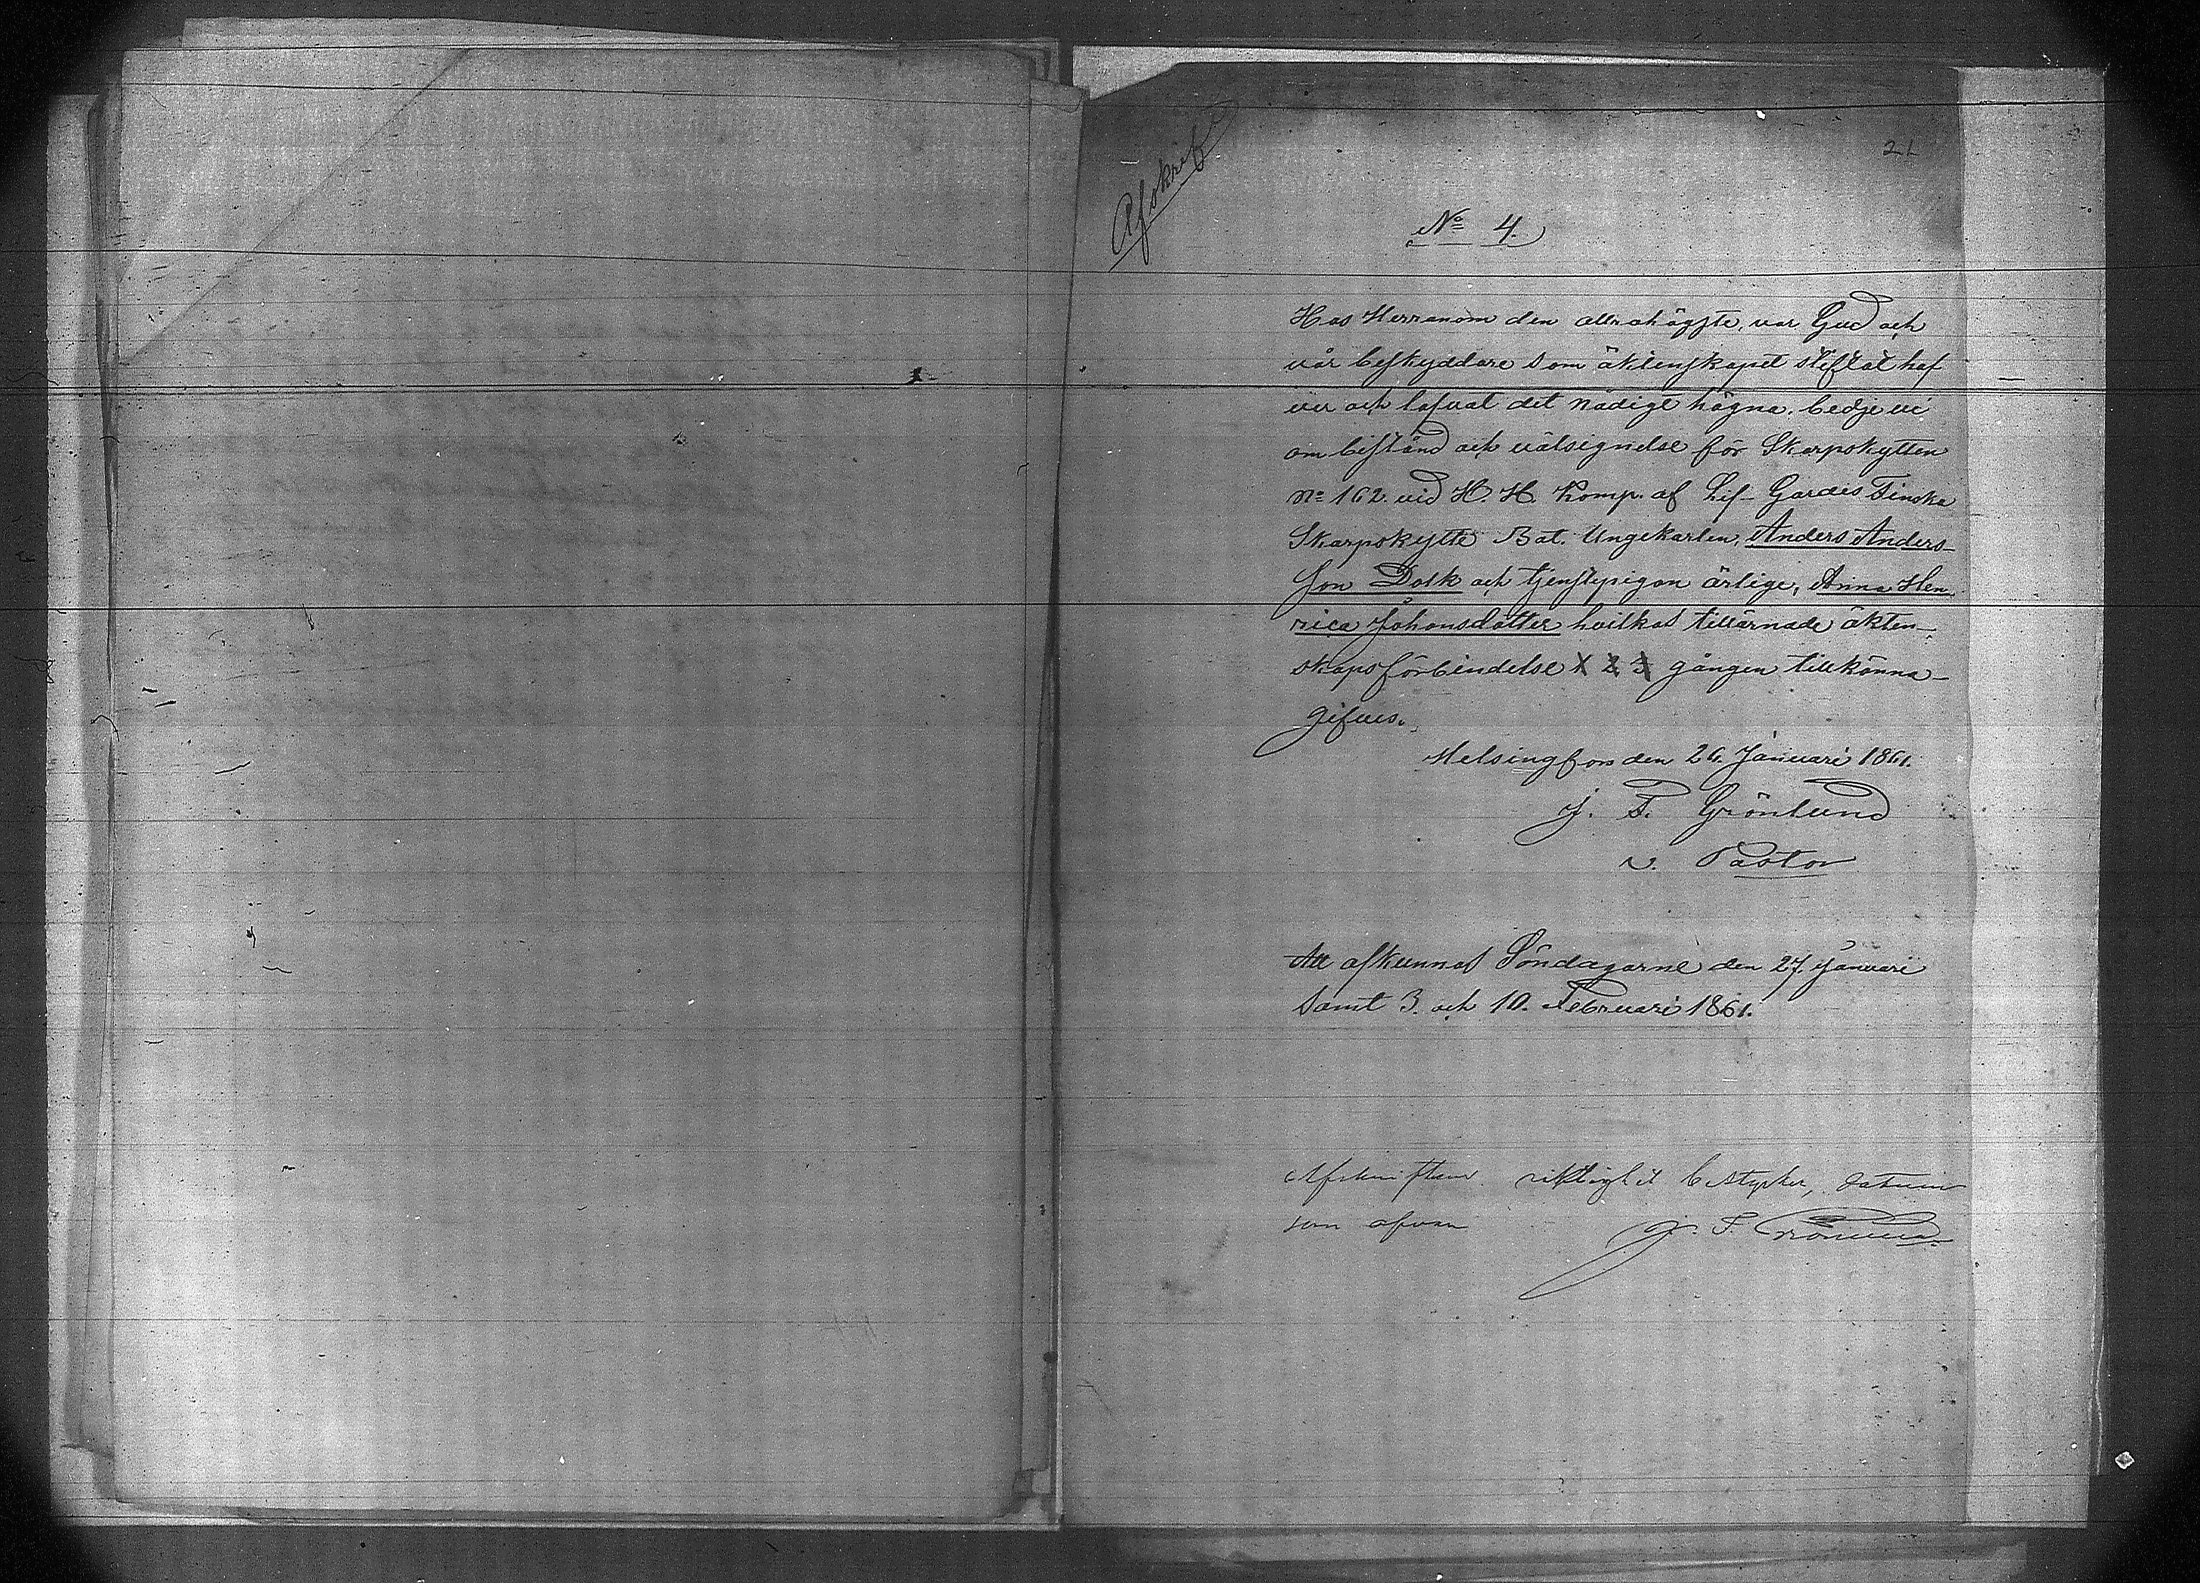 Afskrift
21
No 4.
Hos Herranom den allrahögste, vår Gud och
vår beskyddare som äktenskapet stiftat haf
ver och lofvat det nådigt hägna, bedje vi
om bistånd och välsignelse för Skarpskytten
No 162 vid H. H. Komp. af Lif-Gardes Finska
Skarpskytte Bat. Ungekarlen, Anders Anders-
son Dolk och tjenstepigan ärlige, Anna Hen
rica Johansdotter hvilkas tillärnade äkten-
skapsförbindelse 1 2 3 gången tillkänna-
gifves.
Helsingfors den 26. Januari 1861.
J. F. Grönlund
v. Pastor
Att afkunnas Söndagarne den 27. Januari
samt 3. och 10. Februari 1861.
Afskriftens riktighet bestyrker, datum
som ofvan J. F. Grönlund